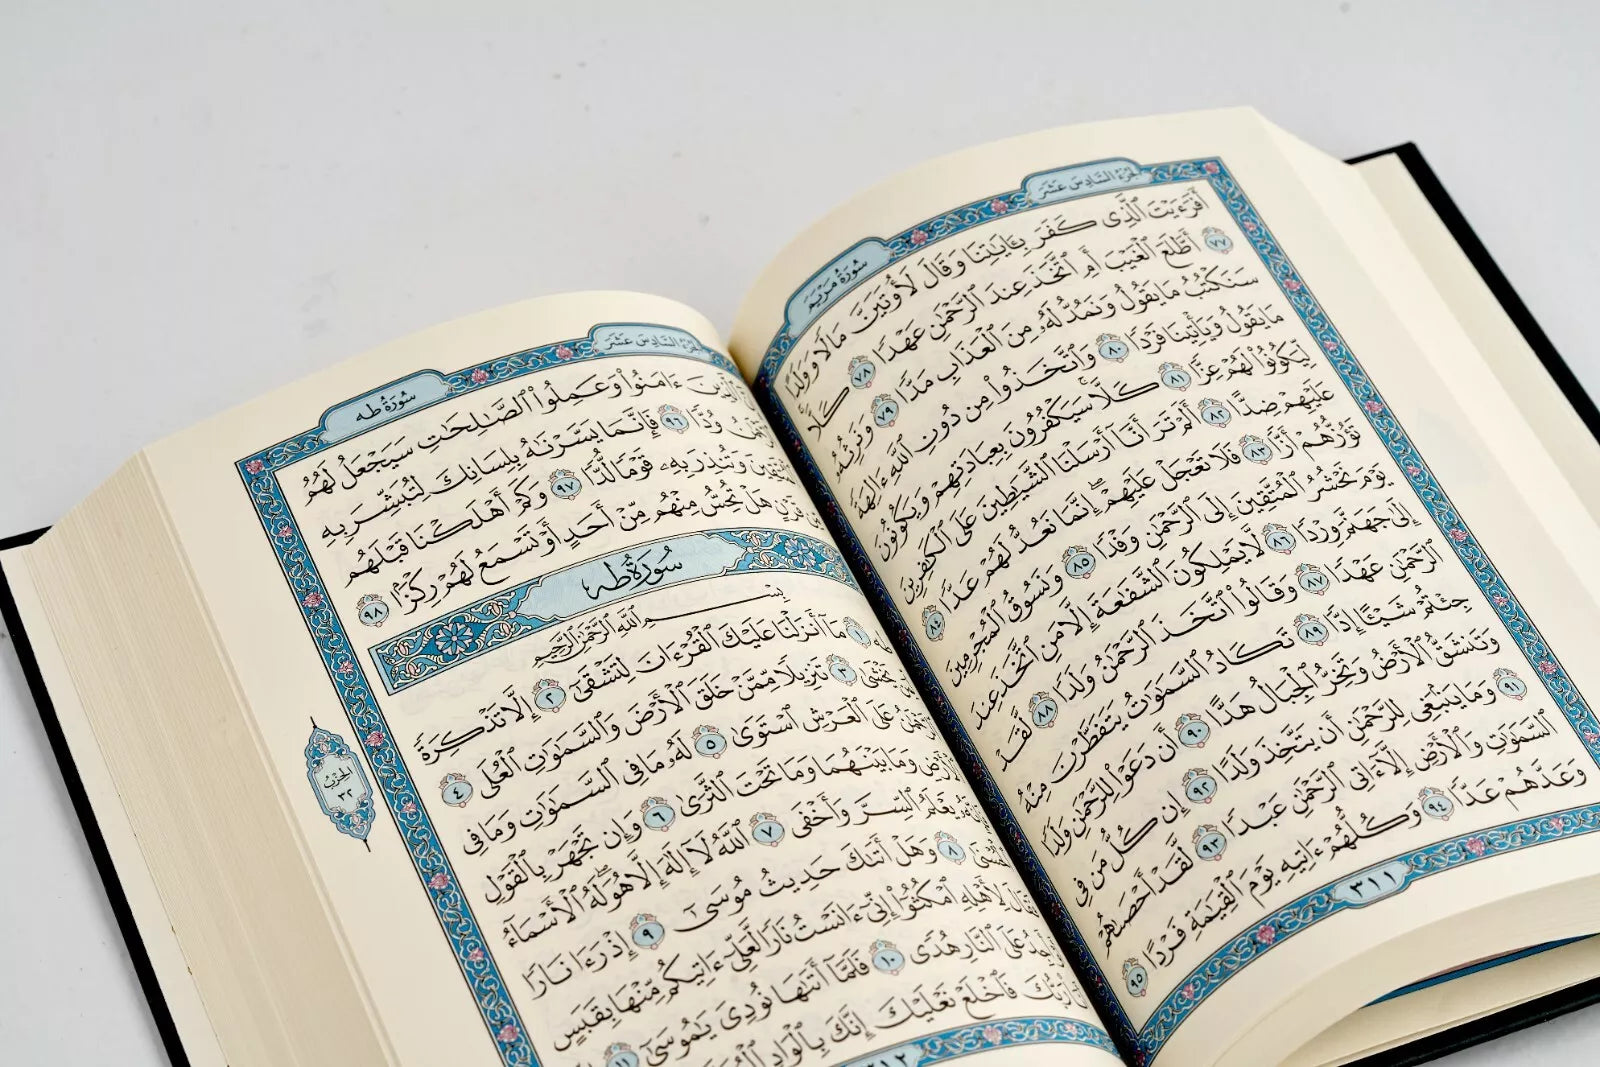 الجُزْءُ السَّادِسَ عَشَرَ
سُورَةُ مَرْيَمَ
أَفَرَءَيْتَ ٱلَّذِى كَفَرَ بِـَٔايَٰتِنَا وَقَالَ لَأُوتَيَنَّ مَالًا وَوَلَدًا
٧٧ أَطَّلَعَ ٱلْغَيْبَ أَمِ ٱتَّخَذَ عِندَ ٱلرَّحْمَٰنِ عَهْدًا ٧٨ كَلَّا
سَنَكْتُبُ مَا يَقُولُ وَنَمُدُّ لَهُۥ مِنَ ٱلْعَذَابِ مَدًّا ٧٩ وَنَرِثُهُۥ
مَا يَقُولُ وَيَأْتِينَا فَرْدًا ٨٠ وَٱتَّخَذُوا۟ مِن دُونِ ٱللَّهِ ءَالِهَةً
لِّيَكُونُوا۟ لَهُمْ عِزًّا ٨١ كَلَّا سَيَكْفُرُونَ بِعِبَادَتِهِمْ وَيَكُونُونَ
عَلَيْهِمْ ضِدًّا ٨٢ أَلَمْ تَرَ أَنَّآ أَرْسَلْنَا ٱلشَّيَٰطِينَ عَلَى ٱلْكَٰفِرِينَ
تَؤُزُّهُمْ أَزًّا ٨٣ فَلَا تَعْجَلْ عَلَيْهِمْ إِنَّمَا نَعُدُّ لَهُمْ عَدًّا ٨٤
يَوْمَ نَحْشُرُ ٱلْمُتَّقِينَ إِلَى ٱلرَّحْمَٰنِ وَفْدًا ٨٥ وَنَسُوقُ ٱلْمُجْرِمِينَ
إِلَىٰ جَهَنَّمَ وِرْدًا ٨٦ لَّا يَمْلِكُونَ ٱلشَّفَٰعَةَ إِلَّا مَنِ ٱتَّخَذَ عِندَ
ٱلرَّحْمَٰنِ عَهْدًا ٨٧ وَقَالُوا۟ ٱتَّخَذَ ٱلرَّحْمَٰنُ وَلَدًا ٨٨ لَّقَدْ
جِئْتُمْ شَيْـًٔا إِدًّا ٨٩ تَكَادُ ٱلسَّمَٰوَٰتُ يَتَفَطَّرْنَ مِنْهُ
وَتَنشَقُّ ٱلْأَرْضُ وَتَخِرُّ ٱلْجِبَالُ هَدًّا ٩٠ أَن دَعَوْا۟ لِلرَّحْمَٰنِ وَلَدًا
٩١ وَمَا يَنۢبَغِى لِلرَّحْمَٰنِ أَن يَتَّخِذَ وَلَدًا ٩٢ إِن كُلُّ مَن فِى
ٱلسَّمَٰوَٰتِ وَٱلْأَرْضِ إِلَّآ ءَاتِى ٱلرَّحْمَٰنِ عَبْدًا ٩٣ لَّقَدْ أَحْصَىٰهُمْ
وَعَدَّهُمْ عَدًّا ٩٤ وَكُلُّهُمْ ءَاتِيهِ يَوْمَ ٱلْقِيَٰمَةِ فَرْدًا ٩٥
٣١١
الجُزْءُ السَّادِسَ عَشَرَ
سُورَةُ طه
ٱلَّذِينَ ءَامَنُوا۟ وَعَمِلُوا۟ ٱلصَّٰلِحَٰتِ سَيَجْعَلُ لَهُمُ
وُدًّا ٩٦ فَإِنَّمَا يَسَّرْنَٰهُ بِلِسَانِكَ لِتُبَشِّرَ بِهِ
وَتُنذِرَ بِهِۦ قَوْمًا لُّدًّا ٩٧ وَكَمْ أَهْلَكْنَا قَبْلَهُم
مِّن قَرْنٍ هَلْ تُحِسُّ مِنْهُم مِّنْ أَحَدٍ أَوْ تَسْمَعُ لَهُمْ رِكْزًۢا ٩٨
سُورَةُ طه
بِسْمِ ٱللَّهِ ٱلرَّحْمَٰنِ ٱلرَّحِيمِ
طه ١ مَآ أَنزَلْنَا عَلَيْكَ ٱلْقُرْءَانَ لِتَشْقَىٰٓ ٢ إِلَّا تَذْكِرَةً
يَخْشَىٰ ٣ تَنزِيلًا مِّمَّنْ خَلَقَ ٱلْأَرْضَ وَٱلسَّمَٰوَٰتِ ٱلْعُلَى ٤
عَلَى ٱلْعَرْشِ ٱسْتَوَىٰ ٥ لَهُۥ مَا فِى ٱلسَّمَٰوَٰتِ وَمَا فِى
ٱلْأَرْضِ وَمَا بَيْنَهُمَا وَمَا تَحْتَ ٱلثَّرَىٰ ٦ وَإِن تَجْهَرْ بِٱلْقَوْلِ
يَعْلَمُ ٱلسِّرَّ وَأَخْفَى ٧ ٱللَّهُ لَآ إِلَٰهَ إِلَّا هُوَ لَهُ ٱلْأَسْمَآءُ
ٱلْحُسْنَىٰ ٨ وَهَلْ أَتَىٰكَ حَدِيثُ مُوسَىٰٓ ٩ إِذْ رَءَا نَارًا
فَقَالَ لِأَهْلِهِ ٱمْكُثُوٓا۟ إِنِّىٓ ءَانَسْتُ نَارًا لَّعَلِّىٓ ءَاتِيكُم مِّنْهَا بِقَبَسٍ
عَلَى ٱلنَّارِ هُدًى ١٠ فَلَمَّآ أَتَىٰهَا نُودِىَ يَٰمُوسَىٰٓ ١١
رَبُّكَ فَٱخْلَعْ نَعْلَيْكَ إِنَّكَ بِٱلْوَادِ
٣١٢
الحِزْبُ
٣٢